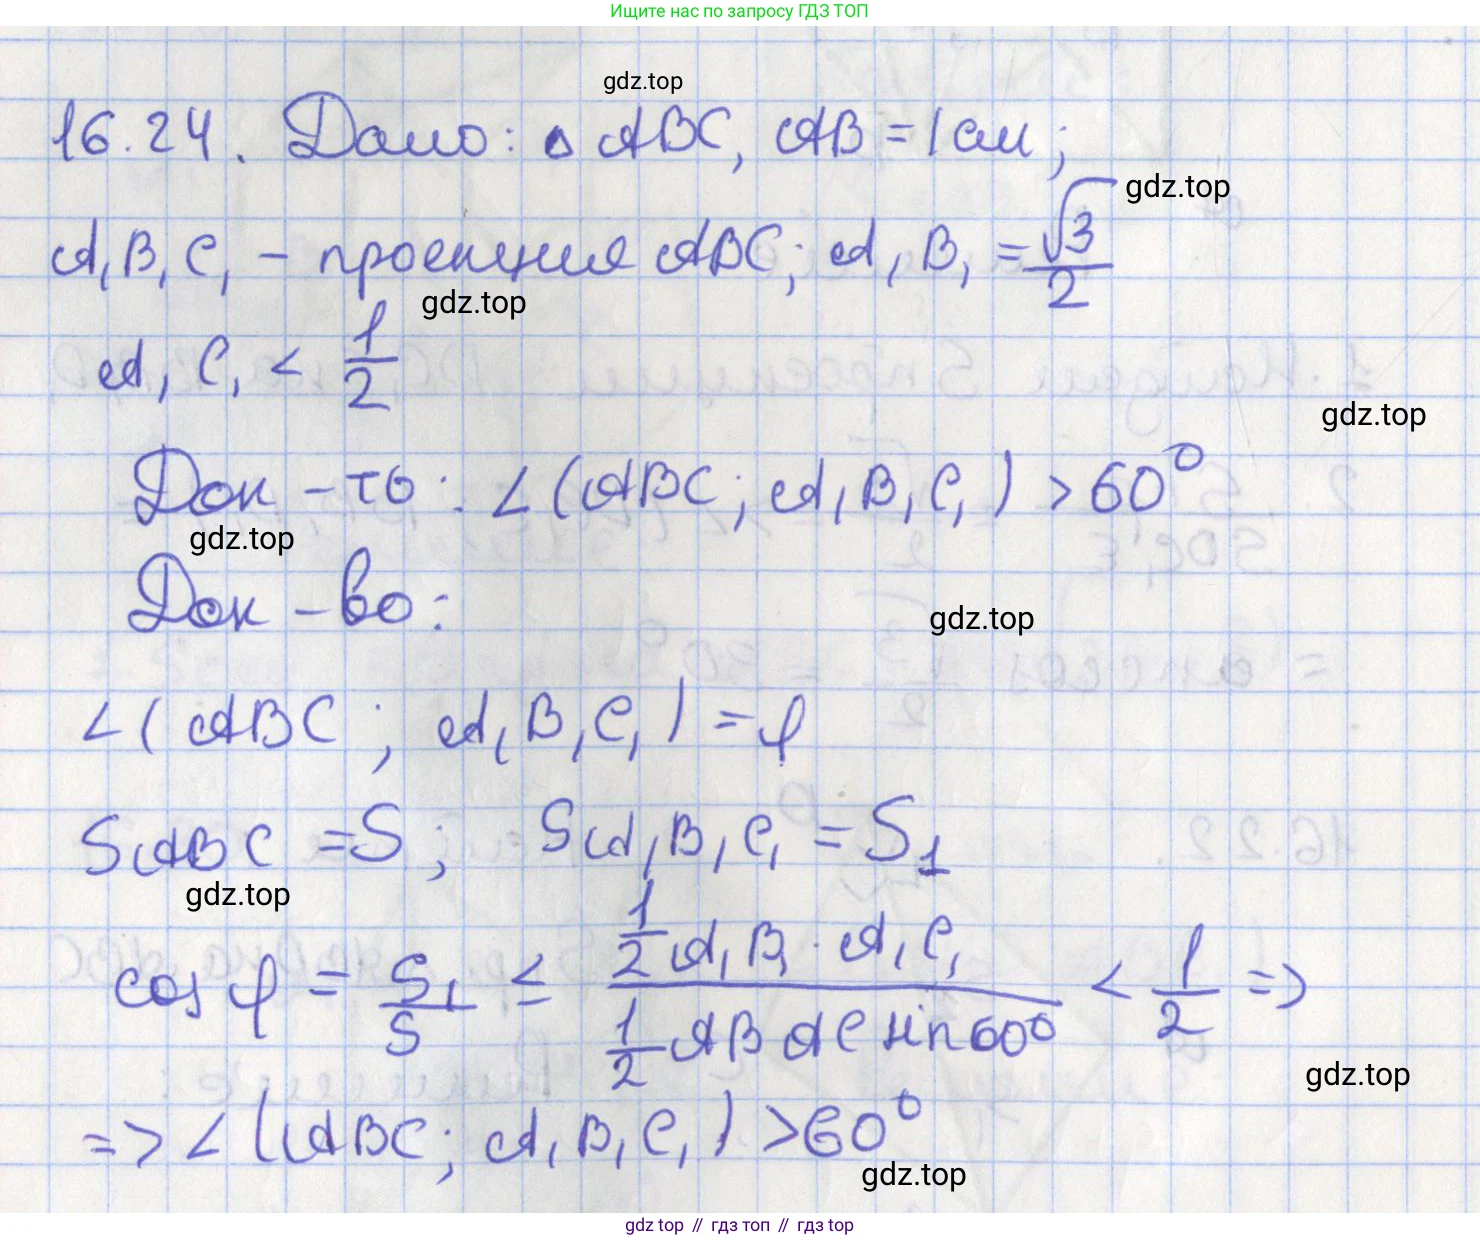 Ищите нас по запросу ГДЗ ТОП
gdz.top
16.24. Дано: △ ABC, AB = 1 см;
gdz.top
A₁B₁C₁ – проекция ABC; A₁B₁ = √3/2
gdz.top
A₁C₁ < 1/2
gdz.top
Док-ть: ∠(ABC; A₁B₁C₁) > 60°
gdz.top
Док-во:
gdz.top
∠(ABC; A₁B₁C₁) = φ
S ABC = S; S A₁B₁C₁ = S₁
gdz.top
cos φ = S₁/S ≤ (1/2 A₁B₁ · A₁C₁)/(1/2 AB AC sin 60°) < 1/2 =>
gdz.top
=> ∠(ABC; A₁B₁C₁) > 60°
gdz.top
gdz.top // гдз топ // gdz.top